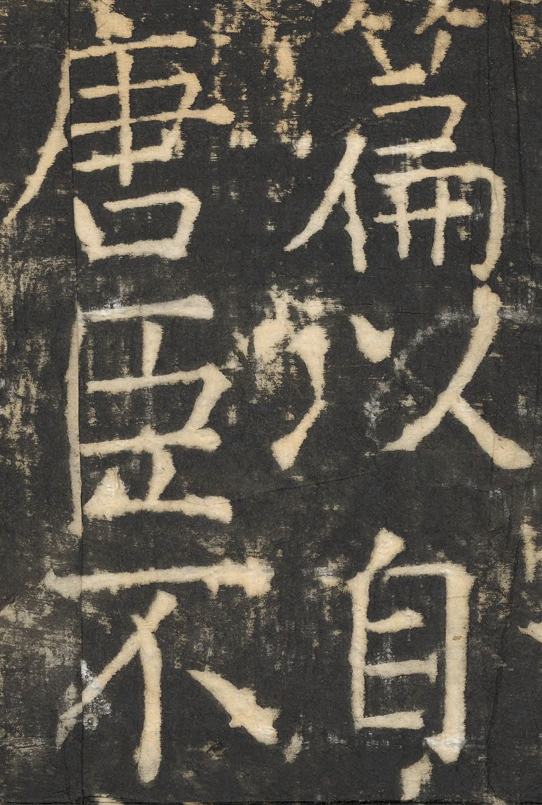 篇以自
唐臣不